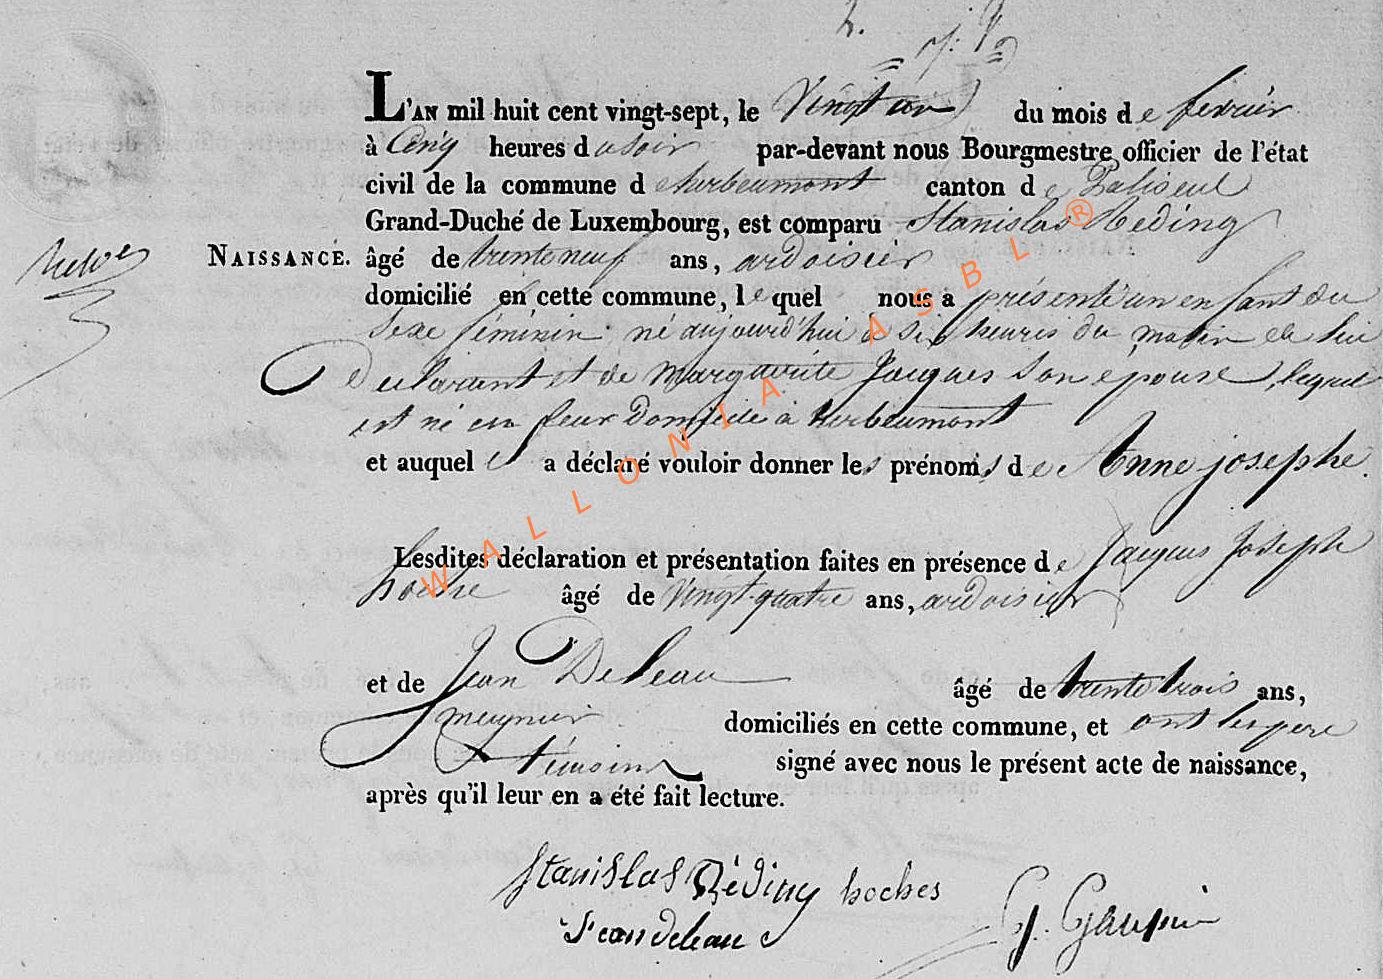 2.
L'AN mil huit cent vingt-sept, le Vingt un du mois de fevrier
à Cinq heures du soir par-devant nous Bourgmestre officier de l'état
civil de la commune d'herbeumont canton de Paliseul
Grand-Duché de Luxembourg, est comparu Stanislas Reding
NAISSANCE. âgé de trente neuf ans, ardoisier
domicilié en cette commune, lequel nous a présenté un enfant du
sexe féminin né aujourd'hui à six heures du matin de lui
Declarant et de Marguerite Jacques son epouse, lequel
est né en leur Domicile à herbeumont
et auquel il a déclaré vouloir donner les prénoms de Anne josephe.
Lesdites déclaration et présentation faites en présence de Jacques Joseph
hoche âgé de Vingt-quatre ans, ardoisier
et de Jean Deleau âgé de trente trois ans,
meunier domiciliés en cette commune, et ont les pere
et témoins signé avec nous le présent acte de naissance,
après qu'il leur en a été fait lecture.
Stanislas Réding hoches
Jean deleau G. Gaupin
WALLONIA ASBL ®